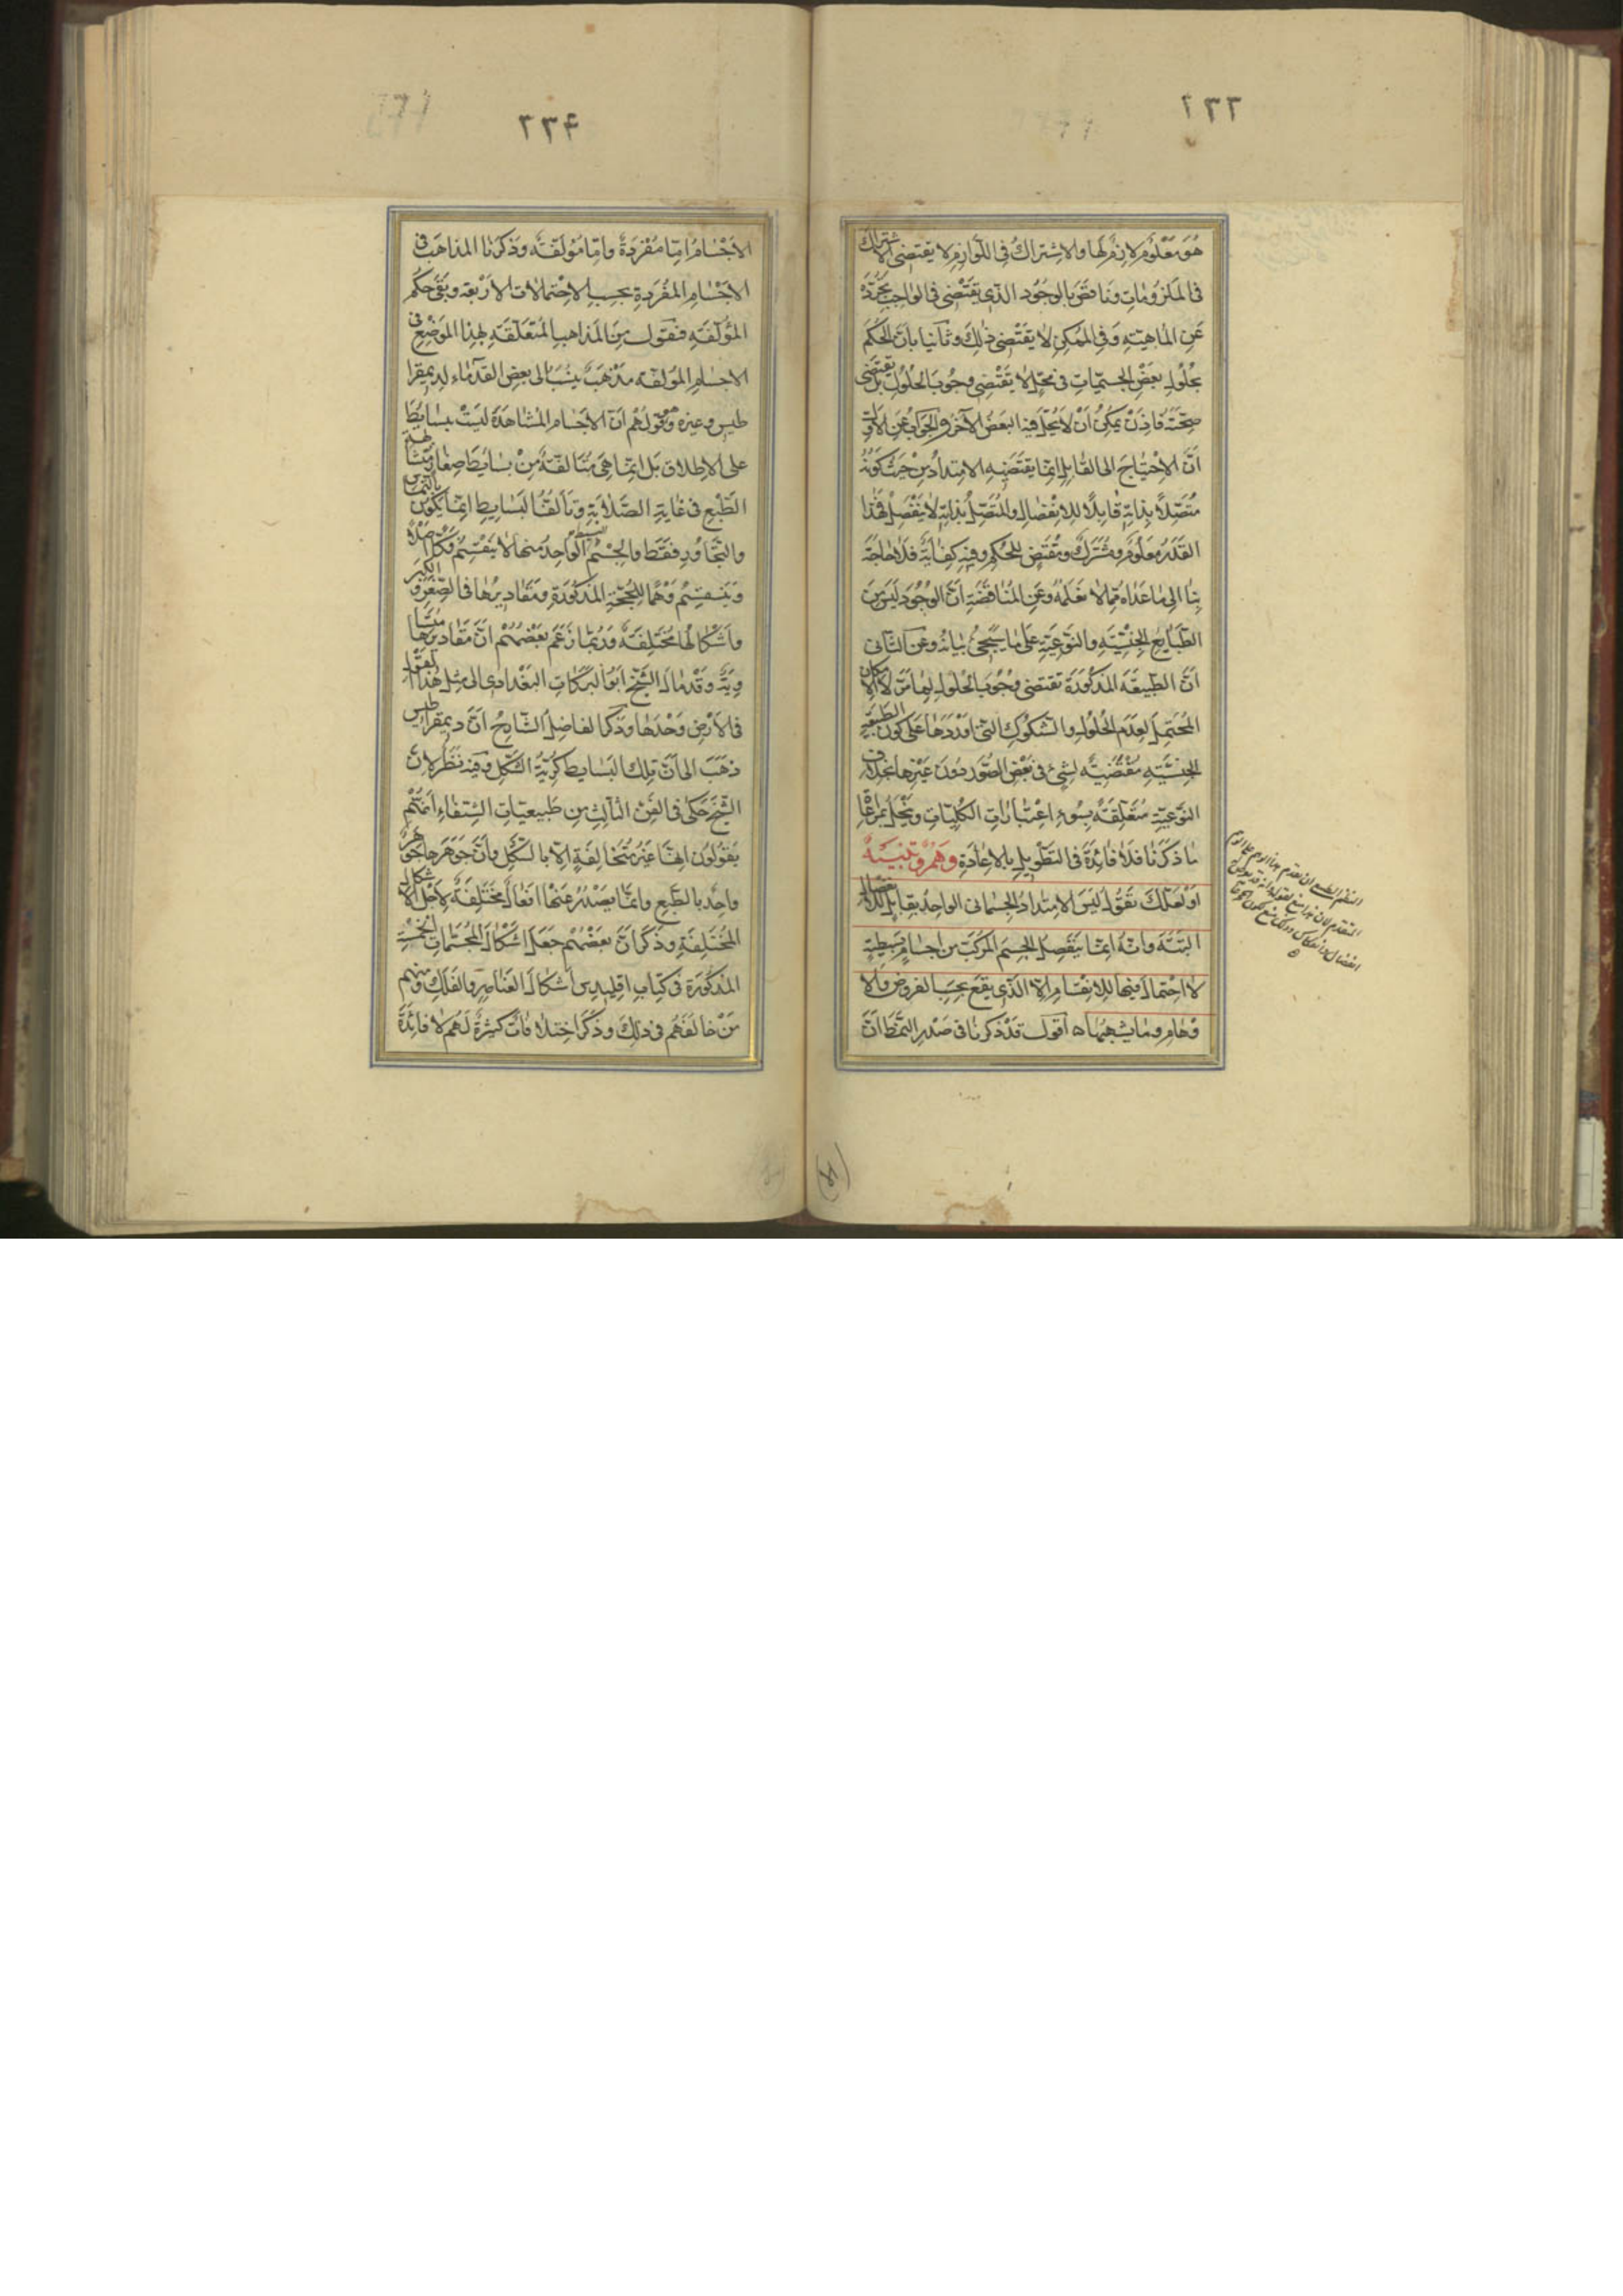 ٢٣٣
هُوَ مَعْلُومٌ لازِمٌ لَها والاشتراكُ فى اللّوازِمِ لا يقتضى الاشتراك
فى المَلزوماتِ ونَاقَضَ بالوجُود الّذى يَقتضى فى الواجبِ تجرّده
عَنِ المَاهيّةِ وَفى المُمكِنِ لا يَقتضى ذٰلِكَ وثانيا بأنّ الحُكمَ
بحُلولِ بعضِ الجسميّاتِ فى مَحَلٍّ لا يَقتضى وجُوبَ الحلُول بَل يقتضى
صِحّتَهُ فَاِذَنْ يمكنُ أنْ لا يحُلّ فيه البَعضُ الآخَرُ والجَوابُ عَن الاوّل
اَنّ الاحْتِياجَ الى القابلِ اِنّما يقتَضيهِ الامتدادُ مِنْ حَيثُ كَونُهُ
متّصِلاً بِذاتِهِ قابِلاً للانفصالِ والمتّصِلُ بذاتِهِ لا يَنفصِلُ فهٰذا
القَدرُ مَعلومٌ ومُشتَركٌ ومُقتَضٍ للحُكمِ وفيهِ كِفايَةٌ فلا حاجةَ
بِنا الى ما عَداه ممّا لا نَعلَمُهُ وعَنِ المُناقَضَةِ اَنّ الوجُودَ لَيسَ مِنَ
الطّبايِعِ الجِنسيّةِ والنّوعيّةِ على ما سَيجئُ بيانُهُ وعَن الثّانى
اَنّ الطّبيعَةَ المَذكُورَةَ تقتضى وجُوبَ الحُلولِ لِما مَرّ لا الامكان
المُحتمِلَ لِعَدَمِ الحُلولِ والشّكوكُ الّتى اَوْرَدَها عَلى كَون الطبيعة
الجِنسيّةِ مُقتَضيةً لِشئٍ فى بَعْضِ الصّوَرِ دُونَ غَيرِها بخلاف
النّوعيّةِ مُتَعلّقَةٌ بِسُوءِ اعْتباراتِ الكُليّاتِ ويَنحَلُّ بمُراعاة
ما ذكَرنا فلا فائدَةَ فى التّطويلِ بالاِعادَةِ وَهْمٌ وَتَنْبيهٌ
اَوْ لَعَلّكَ تَقُولُ لَيسَ الامتِدادُ الجِسمانى الواحِدُ بقابِلٍ للانفصال
البَتّةَ وانّهُ انّما يَنفصِلُ الجِسمُ المُركّبُ مِن اجسامٍ بَسيطةٍ
لا احتمالَ فيها للانقسامِ اِلاّ الّذى يقَعُ بحسَبِ الفروضِ والا
وْهامِ وما يُشبِهُها ه اقول قدْ ذكرنا فى صَدرِ النّمَطِ اَنّ
٢٣٤
الاَجْسامَ اِمّا مُفرَدَةٌ وامّا مُؤَلّفةٌ وذكرنا المَذاهَبَ فى
الاَجْسامِ المفرَدةِ بحَسَبِ الاحْتِمالات الاَرْبَعة وبقى حُكمُ
المُؤَلّفةِ فنقول مِنَ المَذاهبِ المُتَعلّقةِ بهذا المَوضِعِ فى
الاجسامِ المؤلّفة مذْهَبٌ يُنسَبُ الى بعضِ القدَماء لديمقرا
طيس وغيره وهو قولُهم اَنّ الاَجسام المُشاهَدَةَ ليسَتْ ببسايط
على الاِطلاق بَل انّما هِىَ مُتألّفةٌ مِنْ بَسايطَ صِغارٍ متشابهة
الطّبْعِ فى غايَةِ الصّلابَةِ وتألّفُ البَسايِطِ انّما يكون بالتماس
والتّجاورِ فقَط والجِسْمُ البسيط الواحِدُ منها لا يَنقَسِمُ فكّا اصلاً
ويَنقسِمُ وَهْماً للحُجّةِ المَذكُورَةِ ومَقاديرُها فى الصّغَرِ والكبر
واَشكالُها مُختلِفَةٌ ورُبّما زعَمَ بَعضُهُم اَنّ مَقاديرَها متسا
ويَةٌ وقدْ مالَ الشّيخ ابُو البرَكاتِ البَغدادى الى مِثلِ هٰذا القول
فى الاَرْضِ وَحْدَها وذكَرَ الفاضِلُ الشّارحُ اَنّ ديمقراطيس
ذهَبَ الى اَنّ تِلكَ البَسايط كُريّةُ الشّكلِ وفيه نَظَرٌ لانّ
الشّيخ حَكى فى الفنّ الثالِثِ مِن طَبيعيّاتِ الشِّفاءِ اَنّهُمْ
يَقولُونَ انّها غَيرُ مُتَخالِفةٍ اِلاّ بالشّكلِ وأنّ جَوْهَرَها جَوهرٌ
واحِدٌ بالطّبعِ وانّما يَصْدُرُ عَنها افعالٌ مُختلِفةٌ لاَجْلِ الاشكال
المُختلِفَةِ وذكَرَ اَنّ بعضَهُم جعَلَ اَشكالَ المُجَسّمات الخَمْسَةِ
المذكُورَة فى كتابِ اقليدِس أشكالَ العَناصِرِ والفَلكِ ومنهم
مَنْ خالفَهُم فى ذلِكَ وذكَرَ اختلافاتٌ كثيرةٌ لَهُم لا فائدَةَ